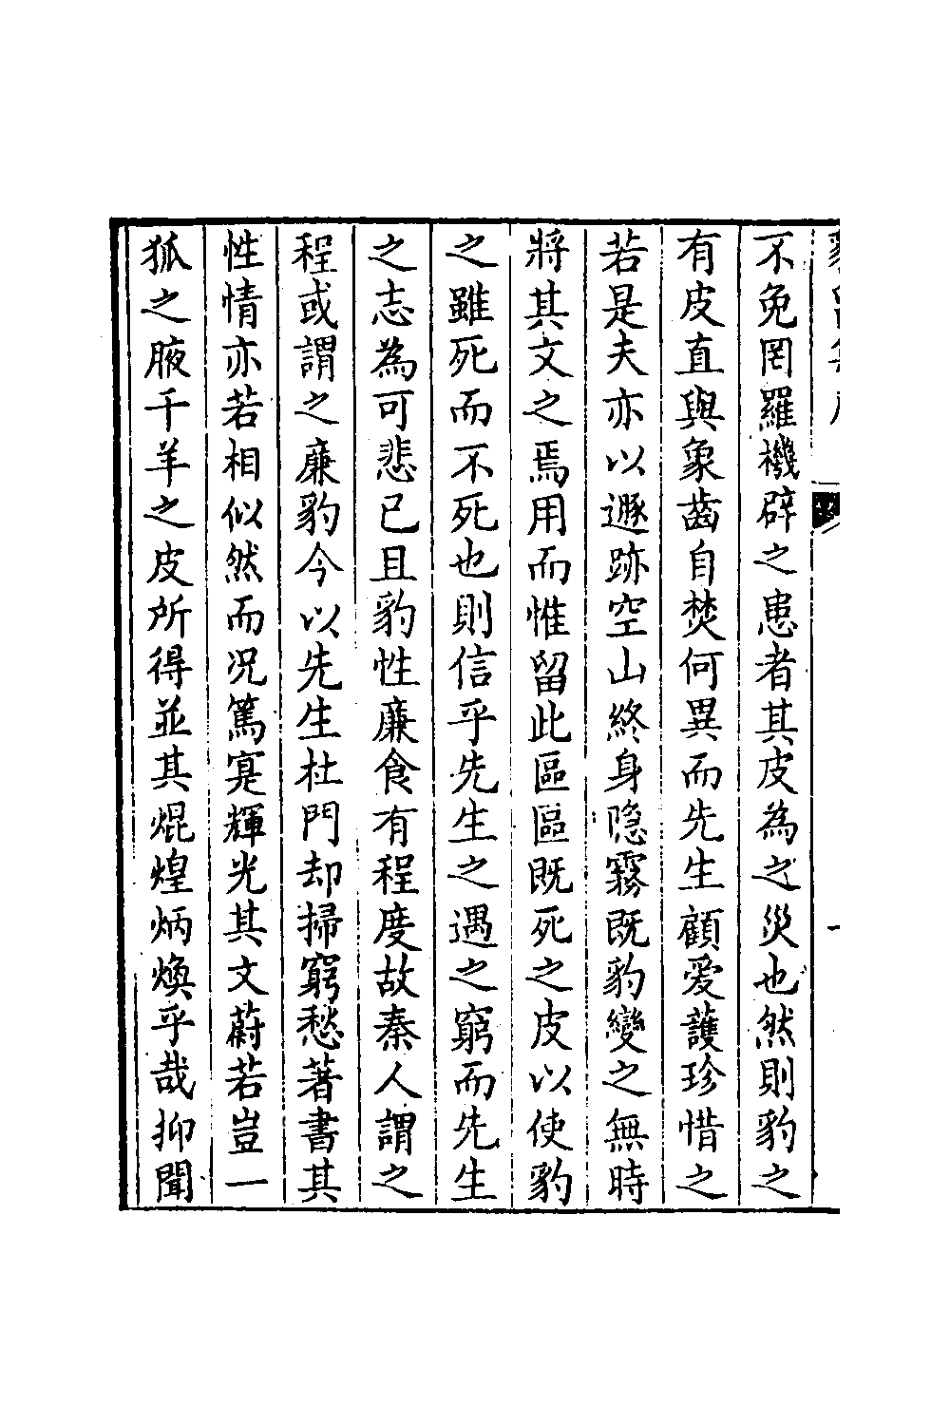 不免罔羅機辟之患者其皮為之災也然則豹之
有皮直與象齒自焚何異而先生顧愛護珍惜之
若是夫亦以遯跡空山終身隐霧既豹變之無時
將其文之焉用而惟留此區區既死之皮以使豹
之雖死而不死也則信乎先生之遇之窮而先生
之志為可悲已且豹性廉食有程度故秦人謂之
程或謂之廉豹今以先生杜門却掃窮愁著書其
性情亦若相似然而况篤寔輝光其文蔚若豈一
狐之腋千羊之皮所得並其焜煌炳煥乎哉抑聞